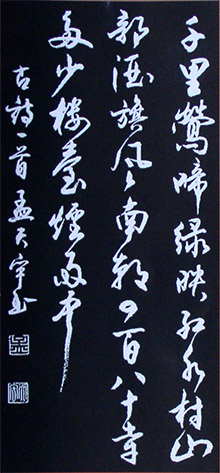 千里鶯啼绿映红水村山
郭酒旗风南朝四百八十寺
多少楼臺煙雨中
古诗一首孟天宇书